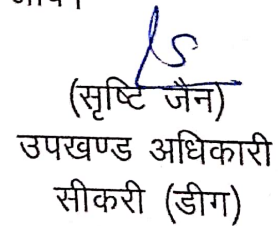 (सृष्टि जैन)
उपखण्ड अधिकारी
सीकरी (डीग)